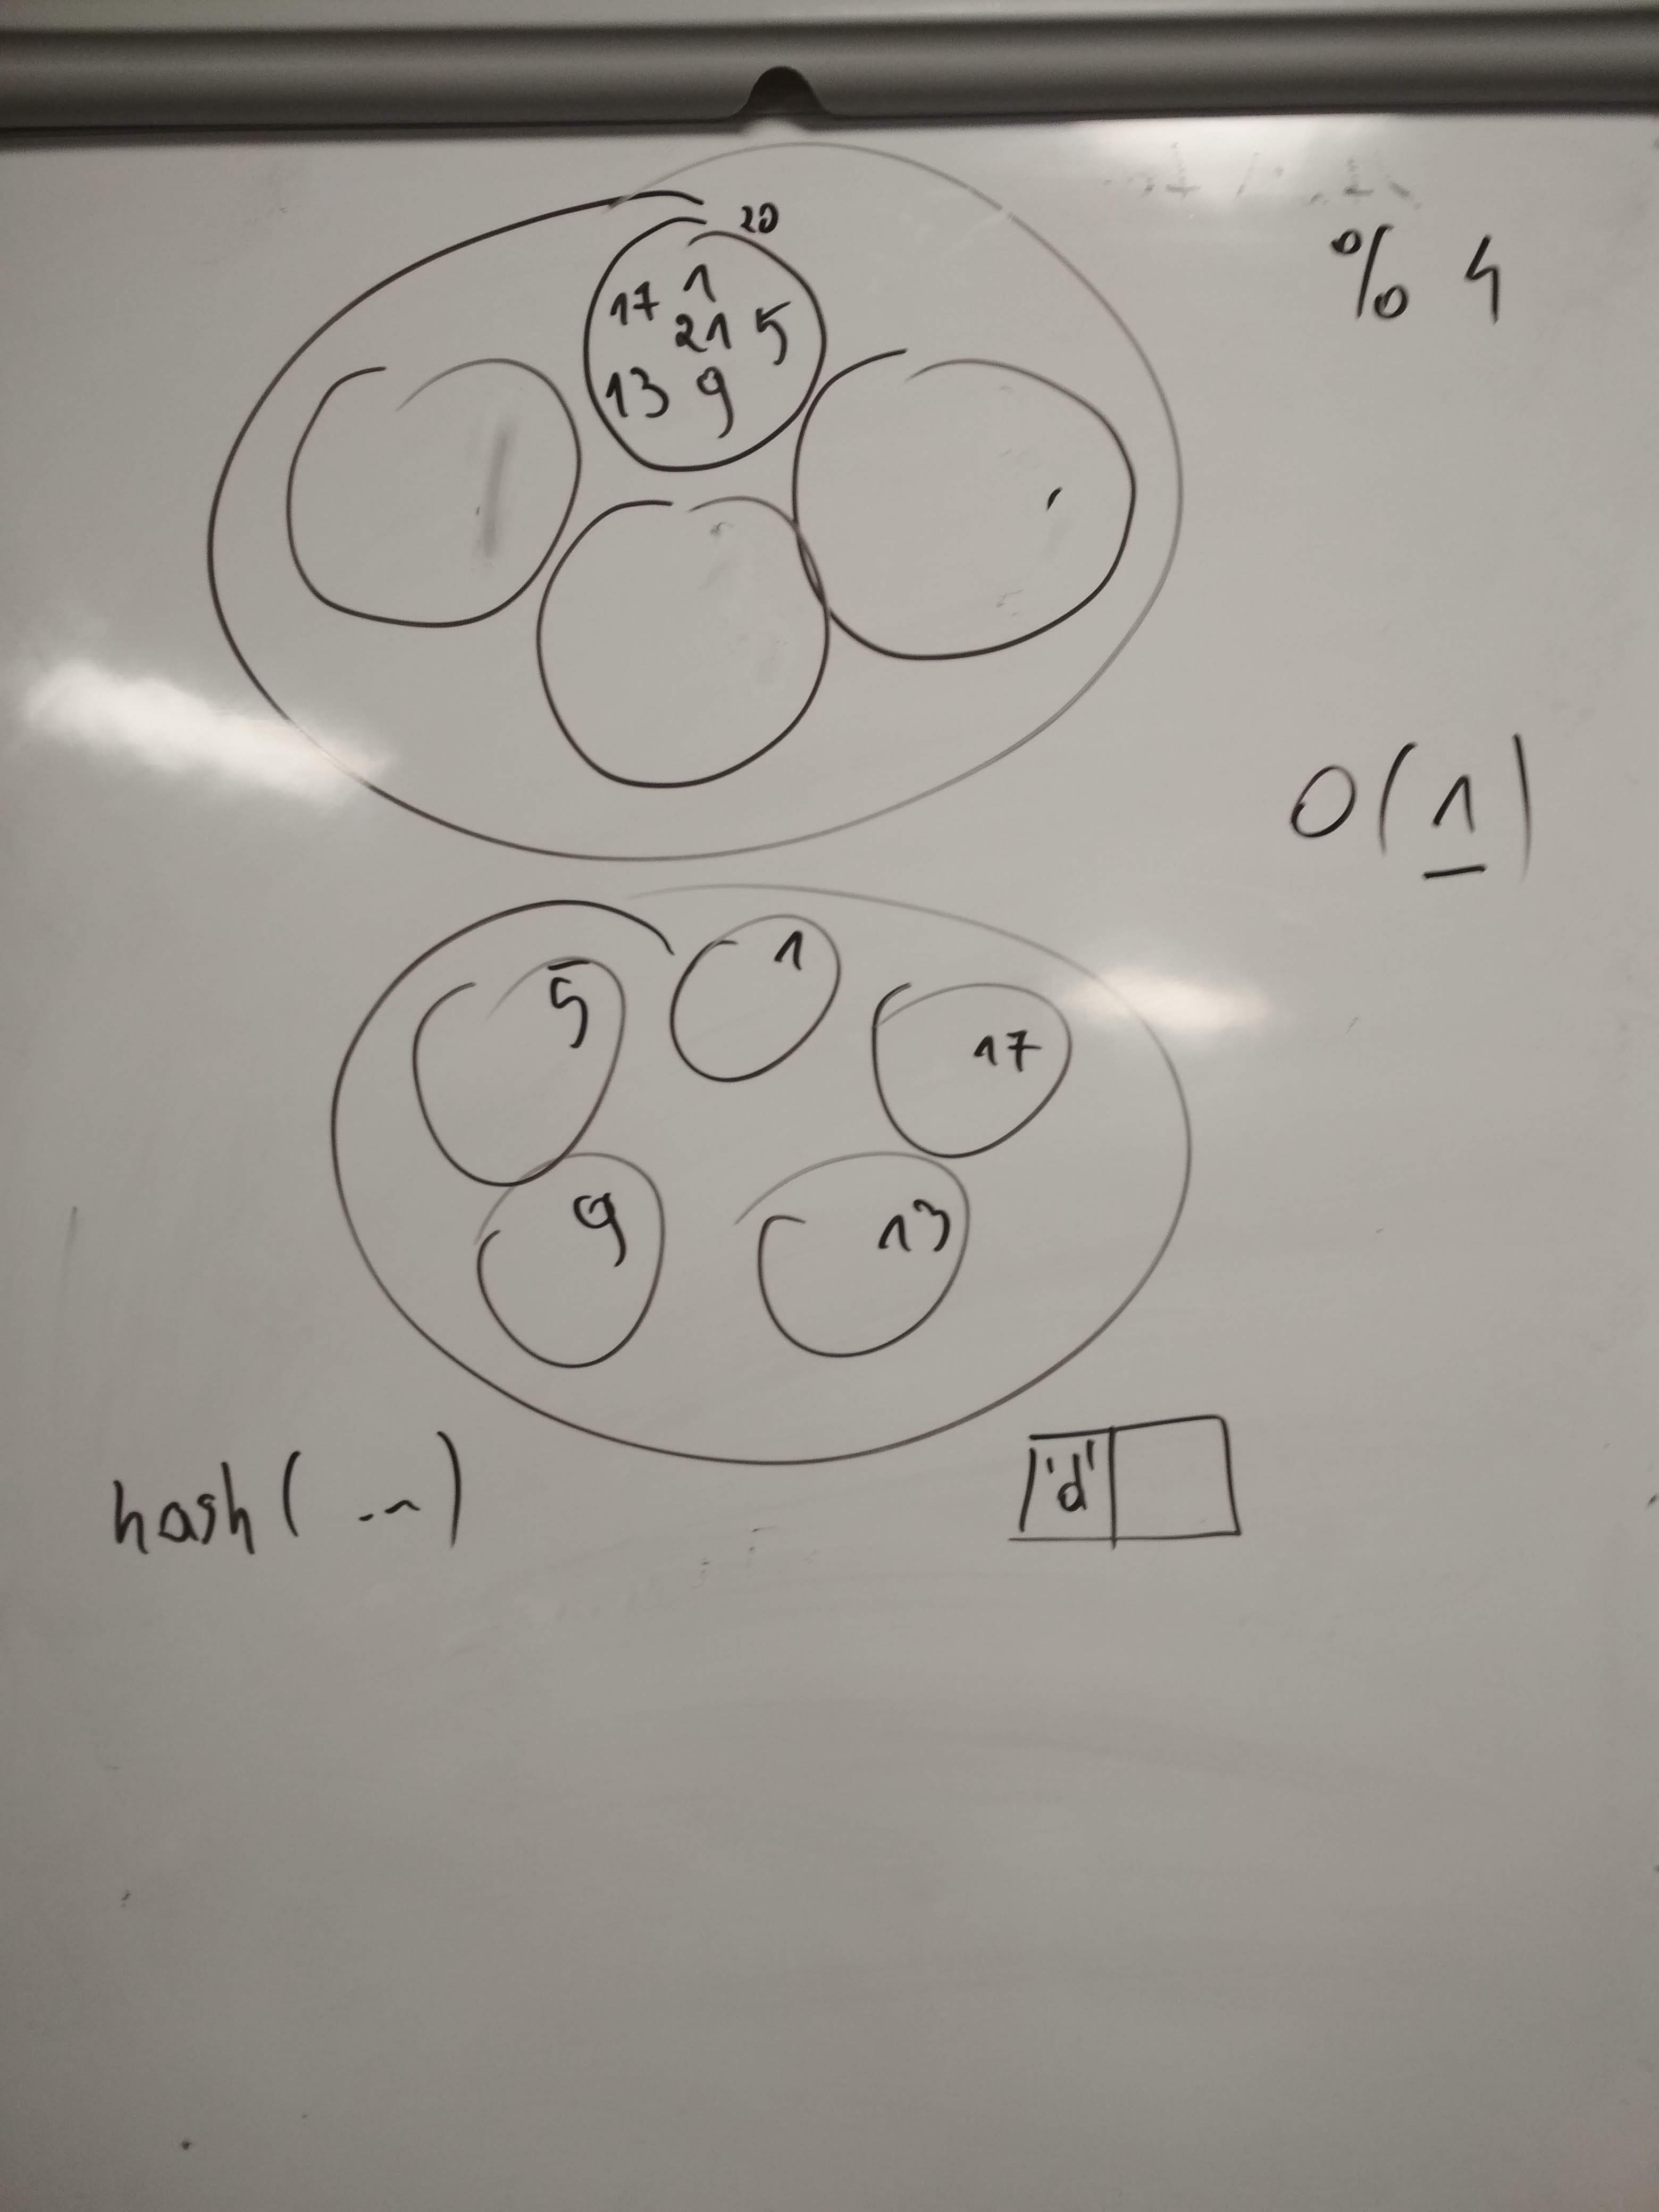 20
% 4
17 1
21 5
13 9
O(1)
5 1
17
9 13
hash(...)
'd'